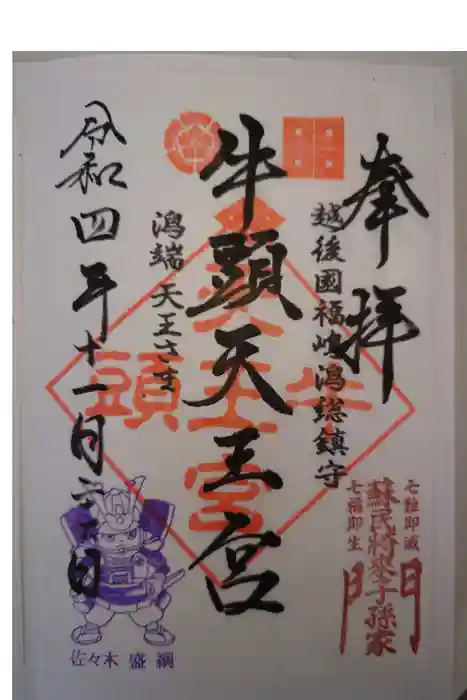 奉拝
越後國福嶋潟総鎮守
牛頭天王宮
潟端天王さま
令和四年十一月六日
牛頭天王宮
七難即滅
七福即生
蘇民将来子孫家
門
佐々木 盛綱